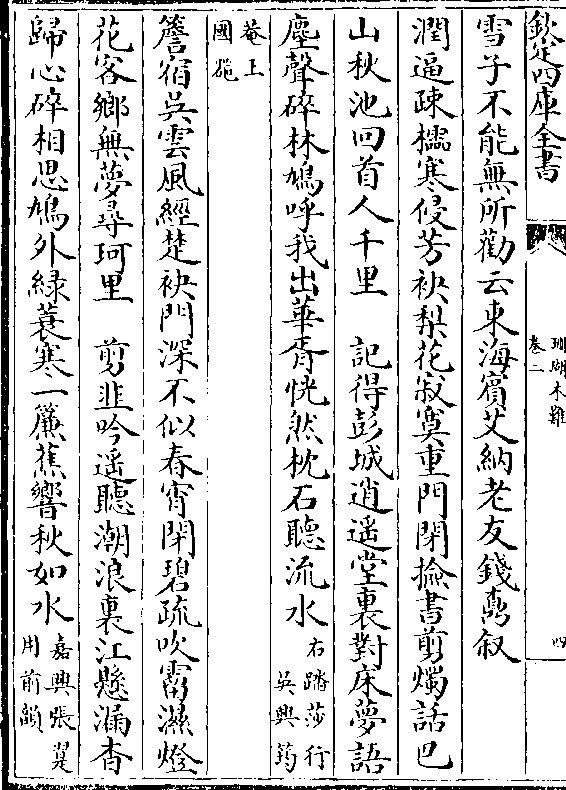 欽定四庫全書
珊瑚木難
卷二
四
雪子不能無所勸云東海賓艾納老友錢鼒叙
潤逼疎櫺寒侵芳袂梨花寂寞重門閉撿書剪燭話巴
山秋池回首人千里　記得彭城逍遥堂裏對床夢語
塵聲碎林鳩呼我出華胥恍然枕石聽流水
右踏莎行
吳興筠
菴王
國器
簷宿吳雲風經楚袂門深不似春宵閉碧疏吹霤濕燈
花客鄉無夢尋珂里　剪韭吟遥聽潮浪裏江懸漏杳
歸心碎相思鳩外緑蓑寒一簾蕉響秋如水
嘉興張翼
用前韻